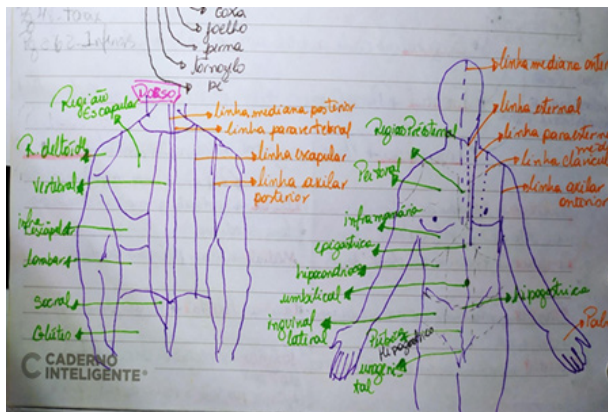 coxa
joelho
perna
tornozelo
pé
DORSO
Região
Escapular
R. deltoide
vertebral
infra
escapular
lombar
sacral
Glúteo
linha mediana posterior
linha paravertebral
linha escapular
linha axilar
posterior
linha mediana anter
linha esternal
linha paraester
linha clavicul
linha axilar
anterior
Região Presternal
Peitoral
inframamária
epigástrica
hipocondrio
umbilical
inguinal
lateral
hipogástrica
Hipogástrico
urogeni
tal
Palm
CADERNO
INTELIGENTE®